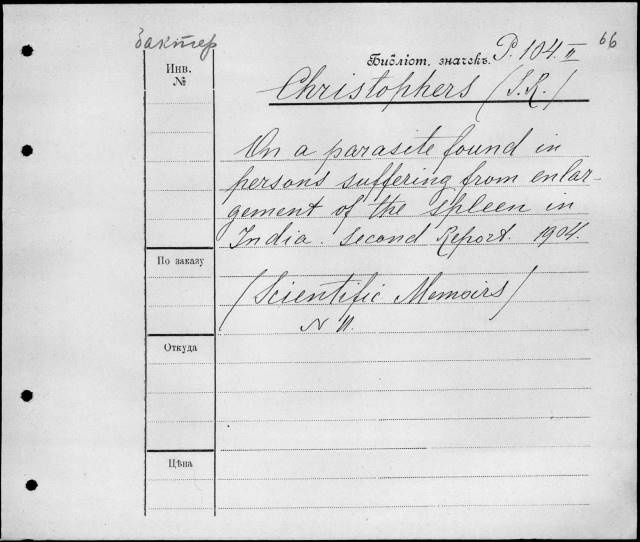 бактер
Библіот. значекъ. P. 104. II 66
Инв.
№
Christophers (S.R.)
On a parasite found in
persons suffering from enlar-
gement of the spleen in
India. Second Report. 1904.
По заказу
(Scientific Memoirs)
N 11.
Откуда
Цѣна